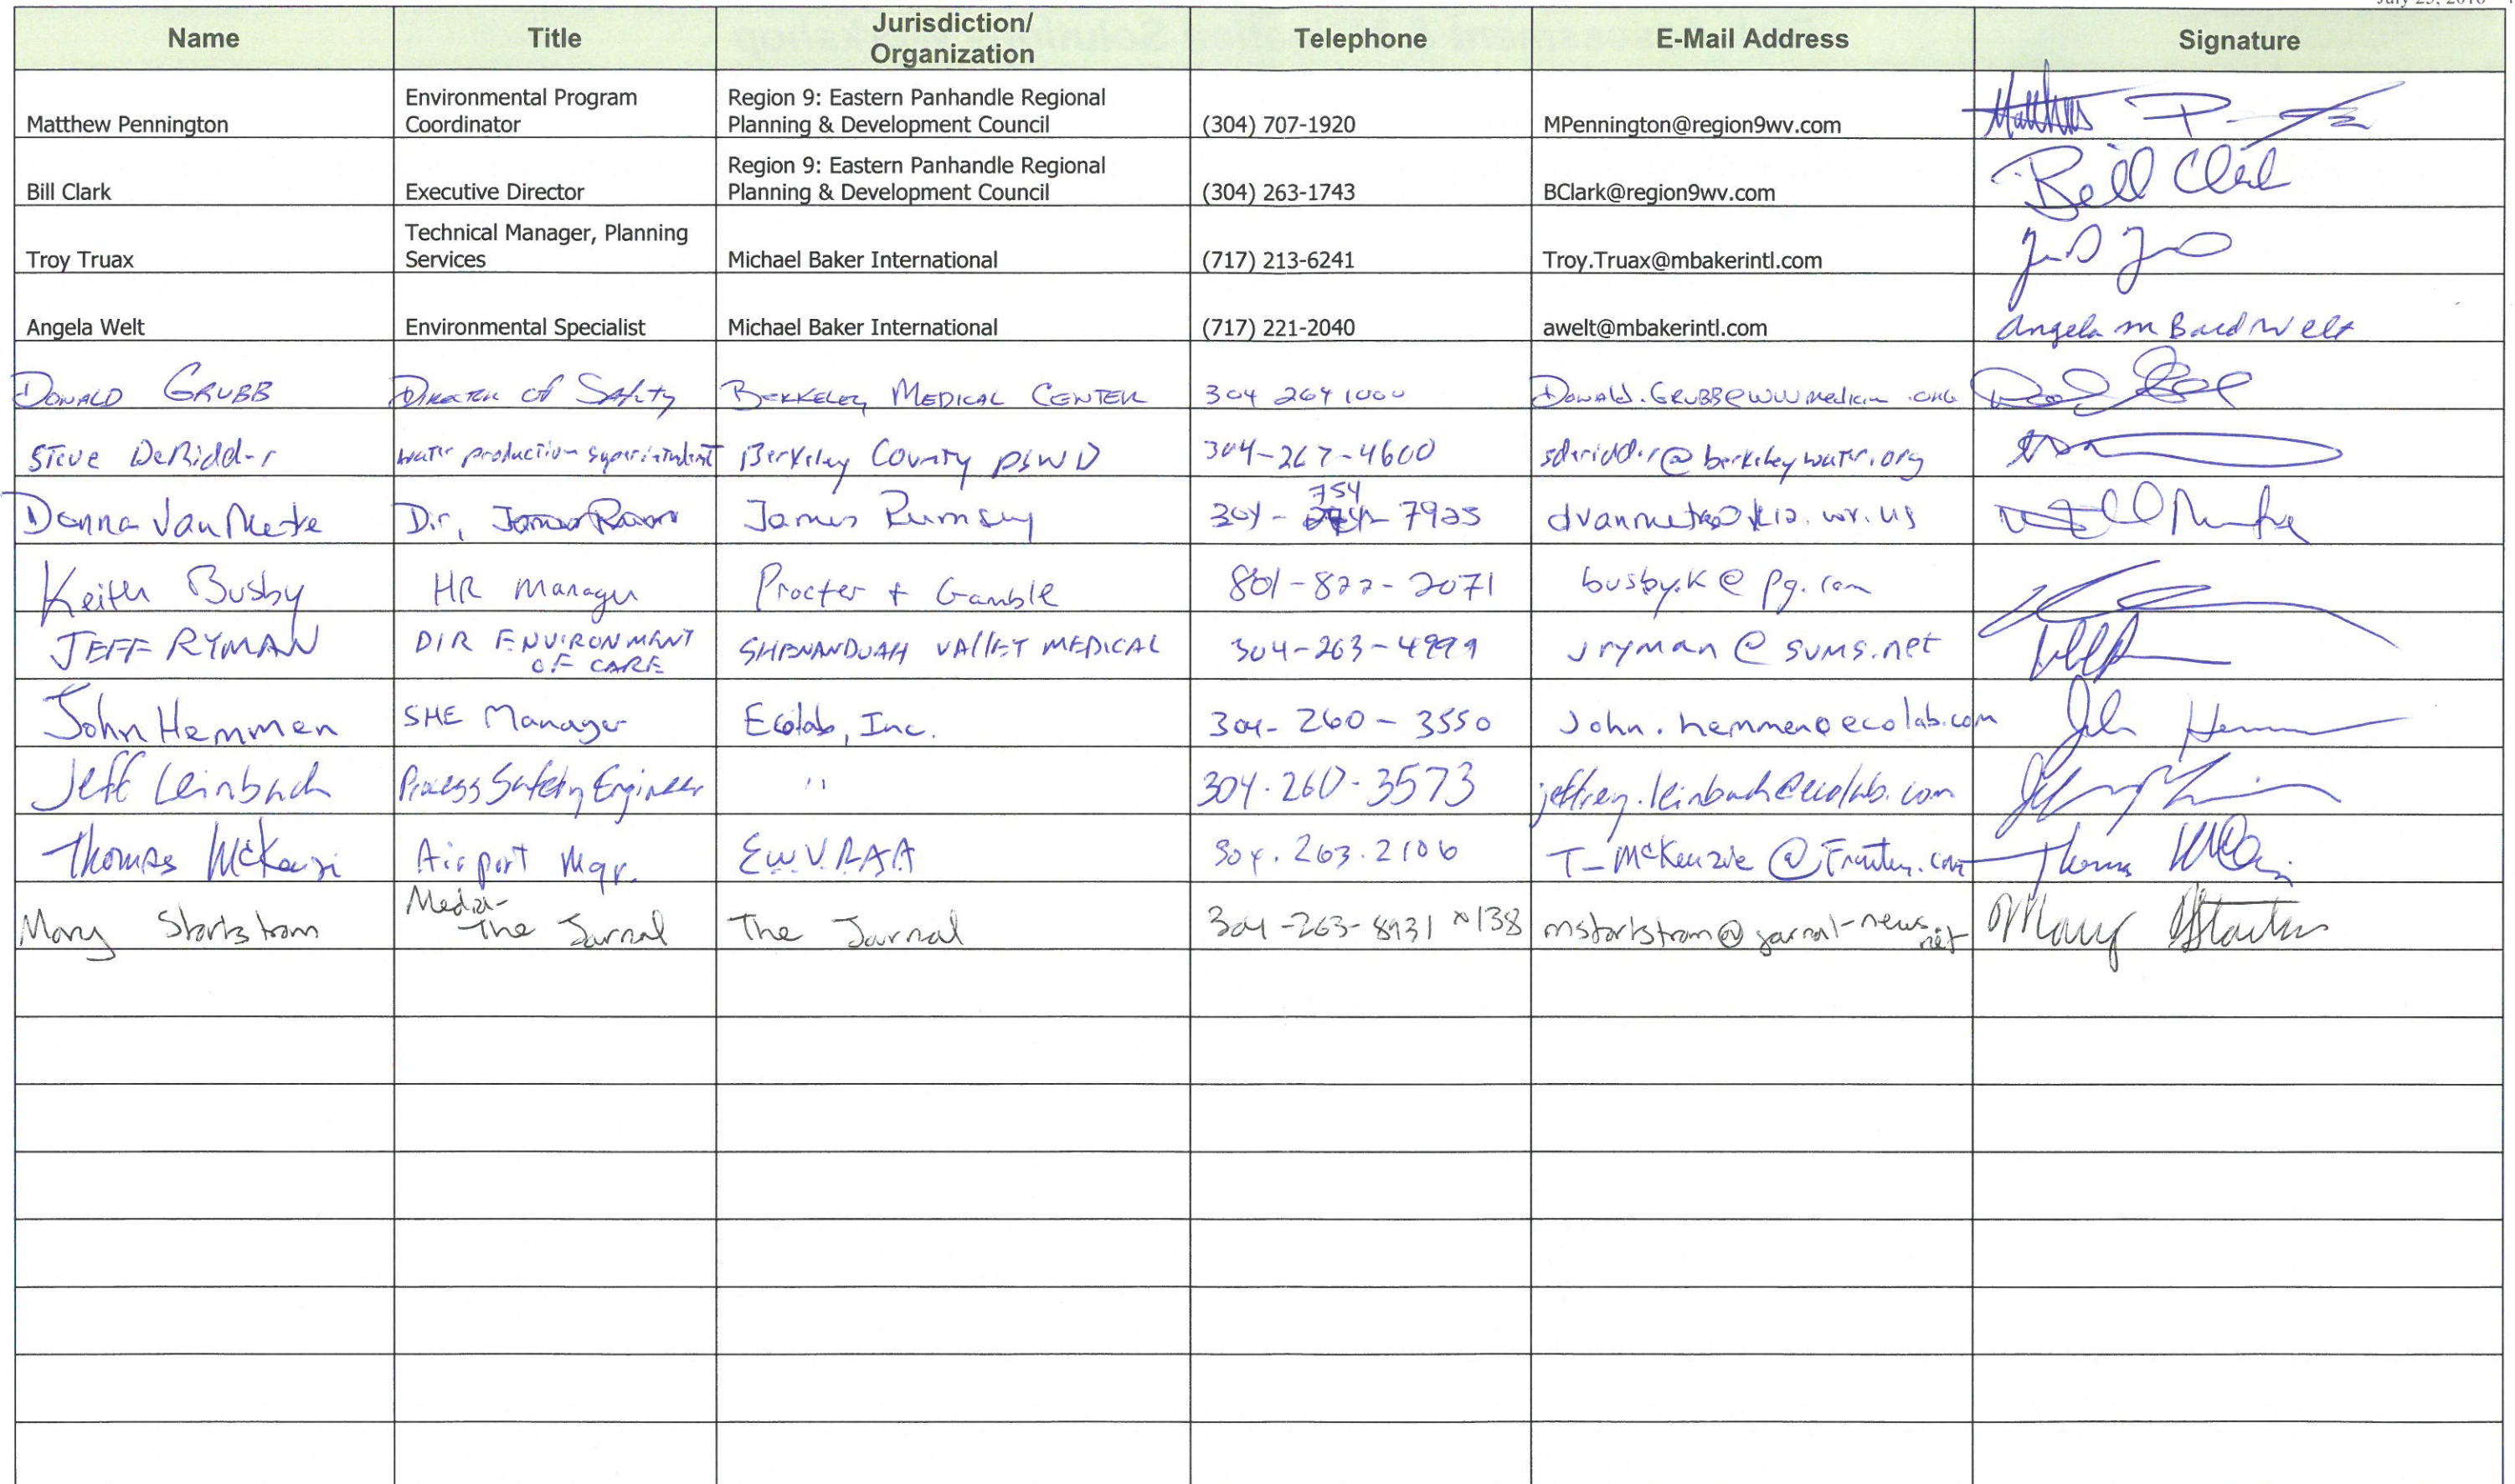 July 25, 2016
Name Title Jurisdiction/ Organization Telephone E-Mail Address Signature
Matthew Pennington Environmental Program Coordinator Region 9: Eastern Panhandle Regional Planning & Development Council (304) 707-1920 MPennington@region9wv.com
Bill Clark Executive Director Region 9: Eastern Panhandle Regional Planning & Development Council (304) 263-1743 BClark@region9wv.com Bill Clark
Troy Truax Technical Manager, Planning Services Michael Baker International (717) 213-6241 Troy.Truax@mbakerintl.com
Angela Welt Environmental Specialist Michael Baker International (717) 221-2040 awelt@mbakerintl.com Angela m Baird Welt
DONALD GRUBB Director of Safety BERKELEY MEDICAL CENTER 304 264 1000 Donald.GRUBB@WVUmedicin.org
Steve DeRidder water production superintendent Berkeley County PSWD 304-267-4600 sderidder@berkeleywater.org
Donna Van Metre Dir, James Rumsey 304-754-7925 @k12.wv.us
Keith Busby HR Manager Procter + Gamble 801-822-2071 busby.k@pg.com
JEFF RYMAN DIR ENVIRONMENT OF CARE SHENANDOAH VALLEY MEDICAL 304-263-4999 jryman@svms.net
John Hemmen SHE Manager Ecolab, Inc. 304-260-3550 John.hemmen@ecolab.com John
Jeff Leinbach Process Safety Engineer " 304.260-3573 jeffrey.leinbach@ecolab.com
Thomas McKenzi Airport Mgr. EWVRAA 304.263.2106 T_McKenzie@Frontier.com Thomas
Mary Stortstrom Media- The Journal The Journal 304-263-8931 x138 mstortstrom@journal-news.net Mary